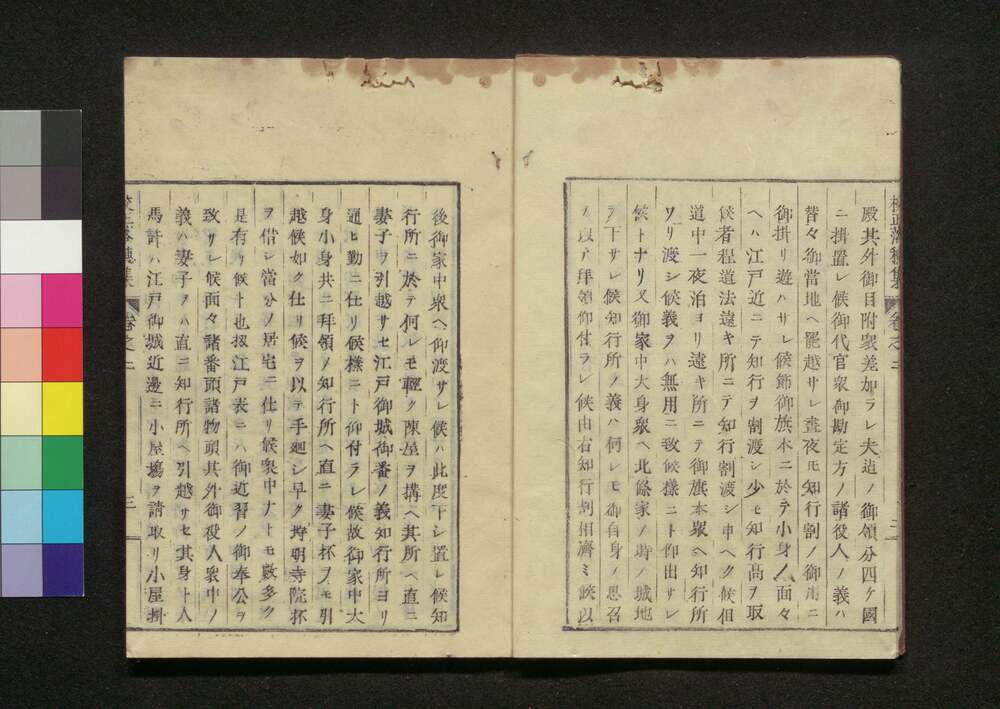 殿其外御目附衆差加ラレ夫迄ノ御領分四ケ國
ニ掛置レ候御代官衆御勘定方ノ諸役人ノ義ハ
昔々御當地ヘ罷越サレ晝夜モ知行割ノ御用ニ
御掛リ遊ハサレ候節御旗本ニ於テ小身ノ面々
ヘハ江戸近ニテ知行ヲ割渡シ少モ知行高ヲ取
候者程道法遠キ所ニテ知行割渡シ申ヘク候但
道中一夜泊ヨリ遠キ所ニテ御旗本衆ヘ知行所
ワリ渡シ候義ヲハ無用ニ致候樣ニト仰出サレ
候トナリ又御家中大身衆ヘ北條家ノ時ノ城地
ヲ下サレ候知行所ノ義ハ何レモ御自身ノ思召
ノ以テ拜領仰付ラレ候由右知行割相濟ミ候以
校正落穗集 卷之二 二
後御家中衆ヘ仰渡サレ候ハ此度下シ置レ候知
行所ニ於テ何レモ輕ク陳屋ヲ搆ヘ其所ヘ直ニ
妻子ヲ引越サセ江戸御城御番ノ義知行所ヨリ
通ヒ勤ニ仕リ候樣ニト仰付ラレ候故御家中大
身小身共ニ拜領ノ知行所ヘ直ニ妻子杯ヲモ引
越候如ク仕リ候ヲ以テ手廻シ早ク埒明寺院杯
ヲ借シ當分ノ居宅ニ仕リ候衆中ナトモ數多ク
是有リ候ト也扨江戸表ニハ御近習ノ御奉公ヲ
致サレ候面々諸番頭諸物頭其外御役人衆中ノ
義ハ妻子ヲハ直ニ知行所ヘ引越サセ其身ト人
馬許ハ江戸御城近邊ニ小屋塲ヲ請取リ小屋掛
校正落穗集 卷之二 三